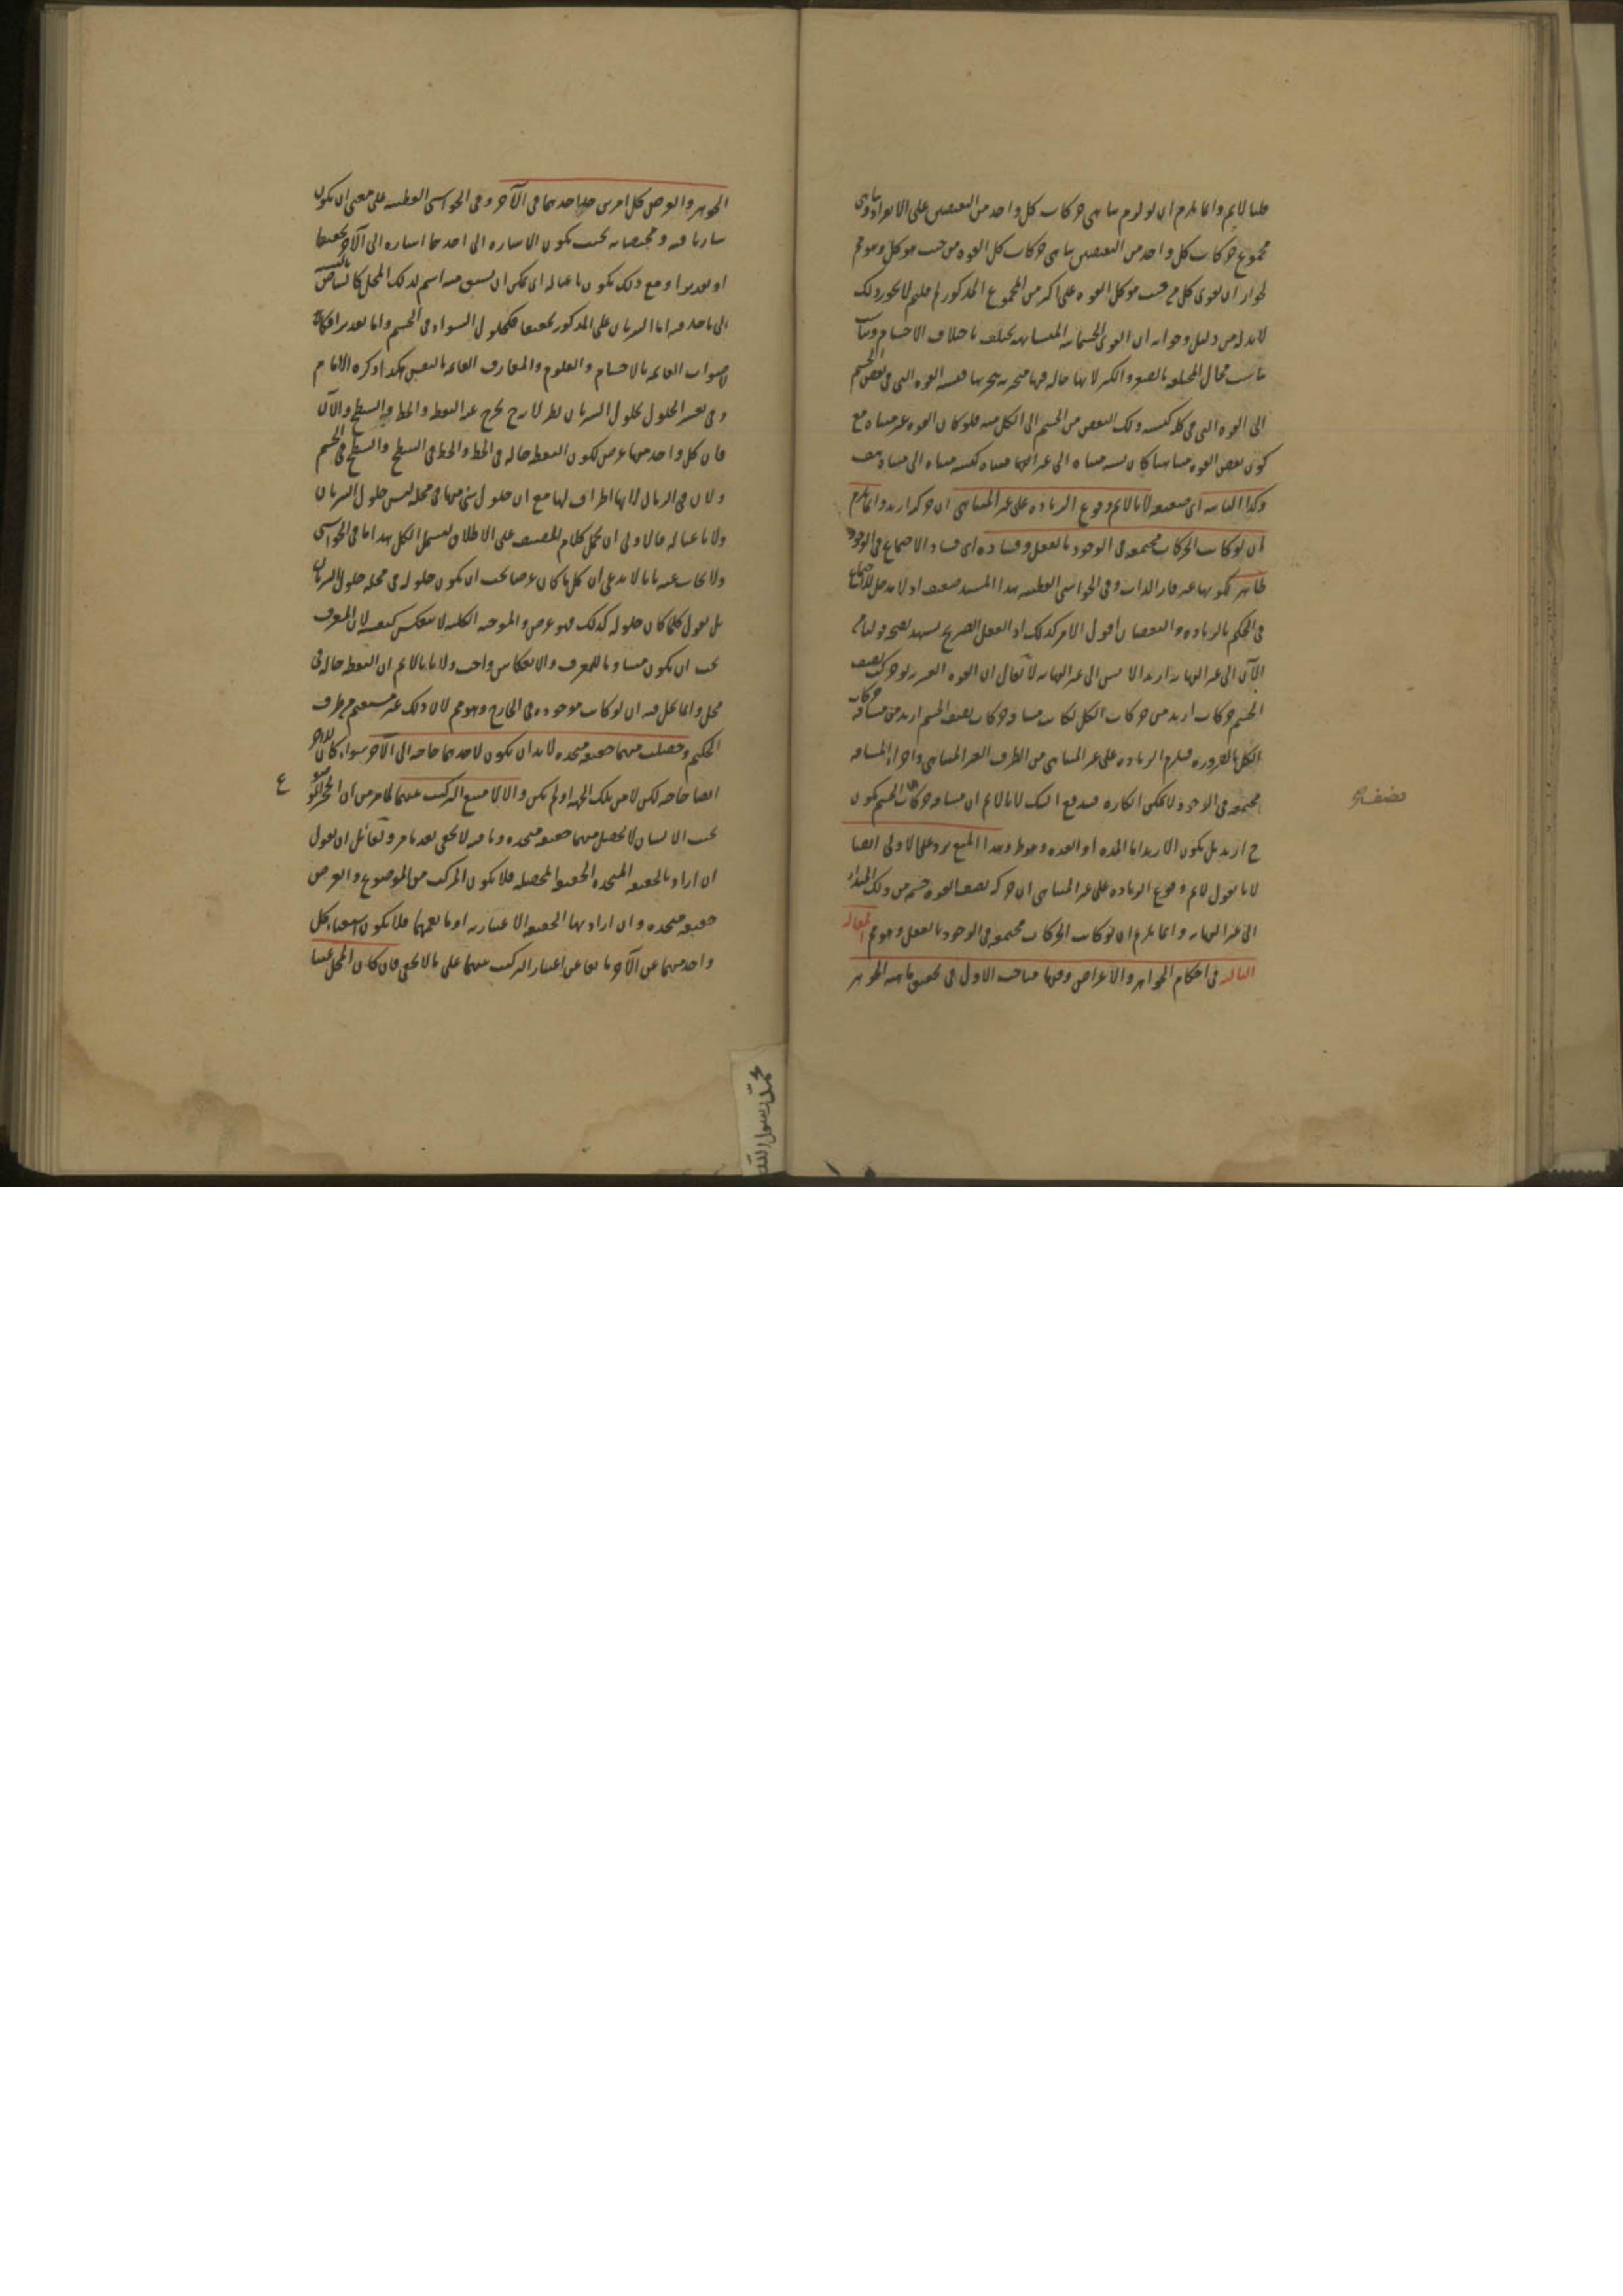 قلنا لا يلزم وانما يلزم ان لو لزم تناهى حركات كل واحد من النصفين على الانفراد تناهى
مجموع حركات كل واحد من النصفين تناهى حركات كل القوة من حيث هو كل وهو مم
لجواز ان يقوى كل من حيث هو كل القوة على اكثر من المجموع المذكور لم قلتم لا يجوز ذلك
لابد له من دليل وجوابه ان القوى الجسمانية المتشابهة تختلف باختلاف الاجسام
تناسب محالها المختلفة بالصغر والكبر لانها حالة فيها متجزية بتجزيها فنسبة القوة التى فى بعض الجسم
الى القوة التى فى كله كنسبة ذلك البعض من الجسم الى الكل منه فلو كان القوة غير متناه مع
كون بعض القوة متناهيا كان نسبة متناه الى غير متناه كنسبة متناه الى متناه هف
وكذا الثانية اى ضعيفة لانا لا نم وقوع الزيادة على غير المتناهى ان حركته ازيد وانما يلزم
ان لو كانت الحركات مجتمعة فى الوجود بالفعل وفساده اى فساد الاجتماع فى الوجود
ظاهر لكونها غير قار الذات وفى الحواشى القطبية هذا المسند ضعيف اذ لا مدخل للاجتماع
فى الحكم بالزيادة والنقصان اقول الامر كذلك اذ العقل الصريح يشهد بصحة قولنا من
الآن الى غير النهاية ازيد الامس الى غير النهاية لا يقال ان القوة الغير لو حركت نصف
الجسم حركات ازيد من حركات الكل لكانت مسافة حركات نصف الجسم ازيد من مسافة حركات
الكل بالضرورة فيلزم الزيادة على غير المتناهى من الطرف الغير المتناهى واجزاء المسافة
مجتمعة فى الوجود لا يمكن انكاره فيندفع الشك لانا لا نم ان مسافة حركات الجسم يكون
ح ازيد بل يكون الازيد اما المدة او العدة وهو ط وهذا المنع يرد على الاولى ايضا
لانا نقول لا نم وقوع الزيادة على غير المتناهى ان حركة نصف القوة جسم من ذلك المبداء
الى غير النهاية وانما يلزم ان لو كانت الحركات مجتمعة فى الوجود بالفعل وهو مم المقالة
الثالثة فى احكام الجواهر والاعراض وفيها مباحث الاول فى تحقيق ماهية الجوهر
نصف
الجوهر والعرض كل امرين حل احدهما فى الآخر وفى الحواشى القطبية على معنى ان يكون
ساريا فيه ومختصا به بحيث يكون الاشارة الى احدهما اشارة الى الآخر تحقيقا
او تقديرا ومع ذلك يكون ناعتا له اى يمكن ان يشتق منه اسم لذلك المحل كالبياض بالنسبة
الى ما حل فيه اما السريان على المذكور تحقيقا فكحلول السواد فى الجسم واما تقديرا فكالا
صوات القائمة بالاجسام والعلوم والمعارف القائمة بالنفس هكذا ذكره الامام
وفى تفسير الحلول بحلول السريان نظر لانه ح يخرج عنه النقطة والخط والسطح والآن
فان كل واحد منها عرض لكون النقطة حالة فى الخط والخط فى السطح والسطح فى الجسم
والآن فى الزمان لانها اطراف لها مع ان حلول شئ منها فى محله ليس حلول السريان
ولا ناعتا له فالاولى ان يحمل كلام المصنف على الاطلاق ليشمل الكل هذا ما فى الحواشى
ولا يجاب عنه بانا لا ندعى ان كل ما كان عرضا يجب ان يكون حلوله فى محله حلول السريان
بل نقول كلما كان حلوله كذلك فهو عرض والموجبة الكلية لا تنعكس كنفسها لان المعرف
يجب ان يكون مساويا للمعرف والانعكاس واجب ولا بانا لا نم ان النقطة حالة فى
محل وانما تحل فيه ان لو كانت موجودة فى الخارج وهو مم لان ذلك غير مستقيم من طرف
الحكيم وحصلت منهما حقيقة متحدة لابد ان يكون لاحدهما حاجة الى الآخر سواء كان للآخر
ايضا حاجة لكن لا من تلك الجهة او لم تكن والا لامتنع التركيب عنهما لما مر من ان الحجر الموضوع
بجنب الانسان لا يحصل منهما حقيقة متحدة وما فيه لا يخفى بعد ما مر ولقائل ان يقول
ان اراد بالحقيقة المتحدة الحقيقة المحصلة فلا يكون المركب من الموضوع والعرض
حقيقة متحدة وان اراد بها الحقيقة الاعتبارية او ما يعمهما فلا يكون استغناء كل
واحد منهما عن الآخر مانعا عن اعتبار التركيب منهما على ما لا يخفى فان كان المحل غنيا
ع